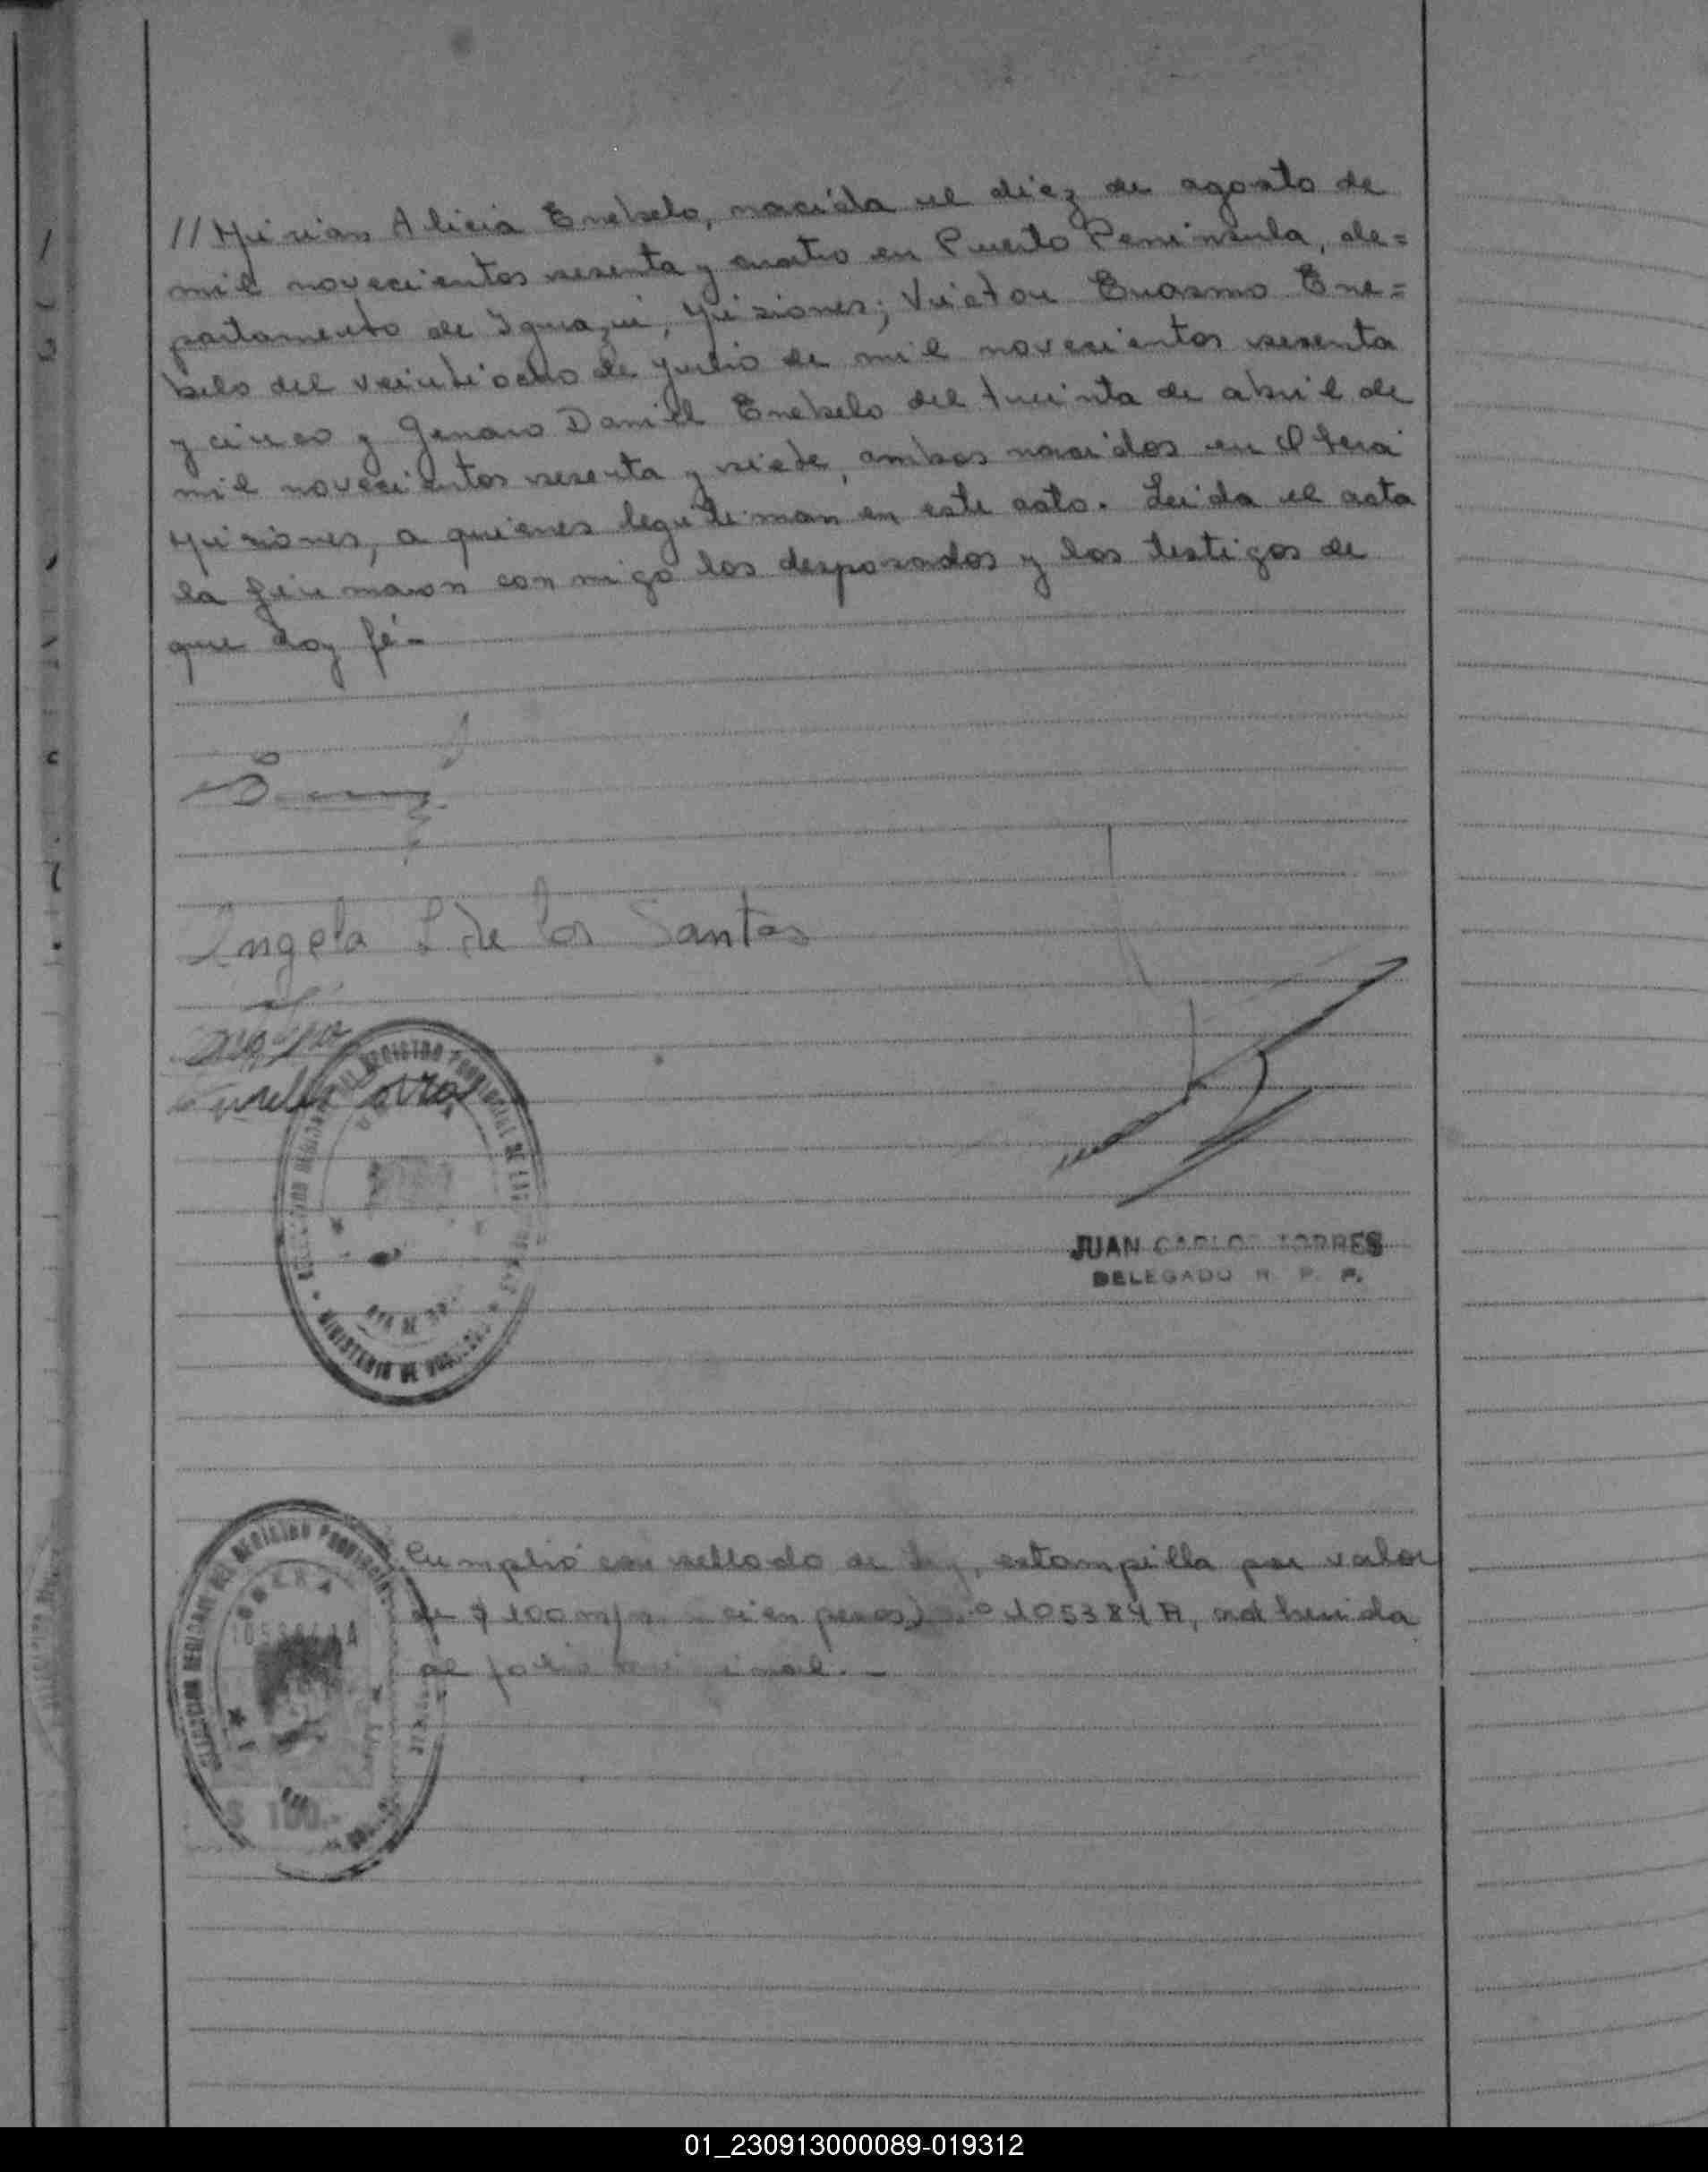 // Mirian Alicia Enebelo, nacida el diez de agosto de
mil novecientos sesenta y cuatro en Puerto Peninsula, de=
partamento de Iguazú, Misiones; Victor Erasmo Ene=
belo del veintiocho de julio de mil novecientos sesenta
y cinco y Genaro Daniel Enebelo del treinta de abril de
mil novecientos sesenta y siete, ambos nacidos en Oberá
Misiones, a quienes legitiman en este acto. Leida el acta
la firmaron conmigo los desposados y los testigos de
que doy fé-
Angela L de los Santos
JUAN CARLOS TORRES
DELEGADO R. P. P.
MINISTERIO DE
Cumplió con sellado de ley, estampilla por valor
de $ 100 m/n cien pesos) 105384 A, adherida
al folio
OBERA
$ 100.-
01_230913000089-019312